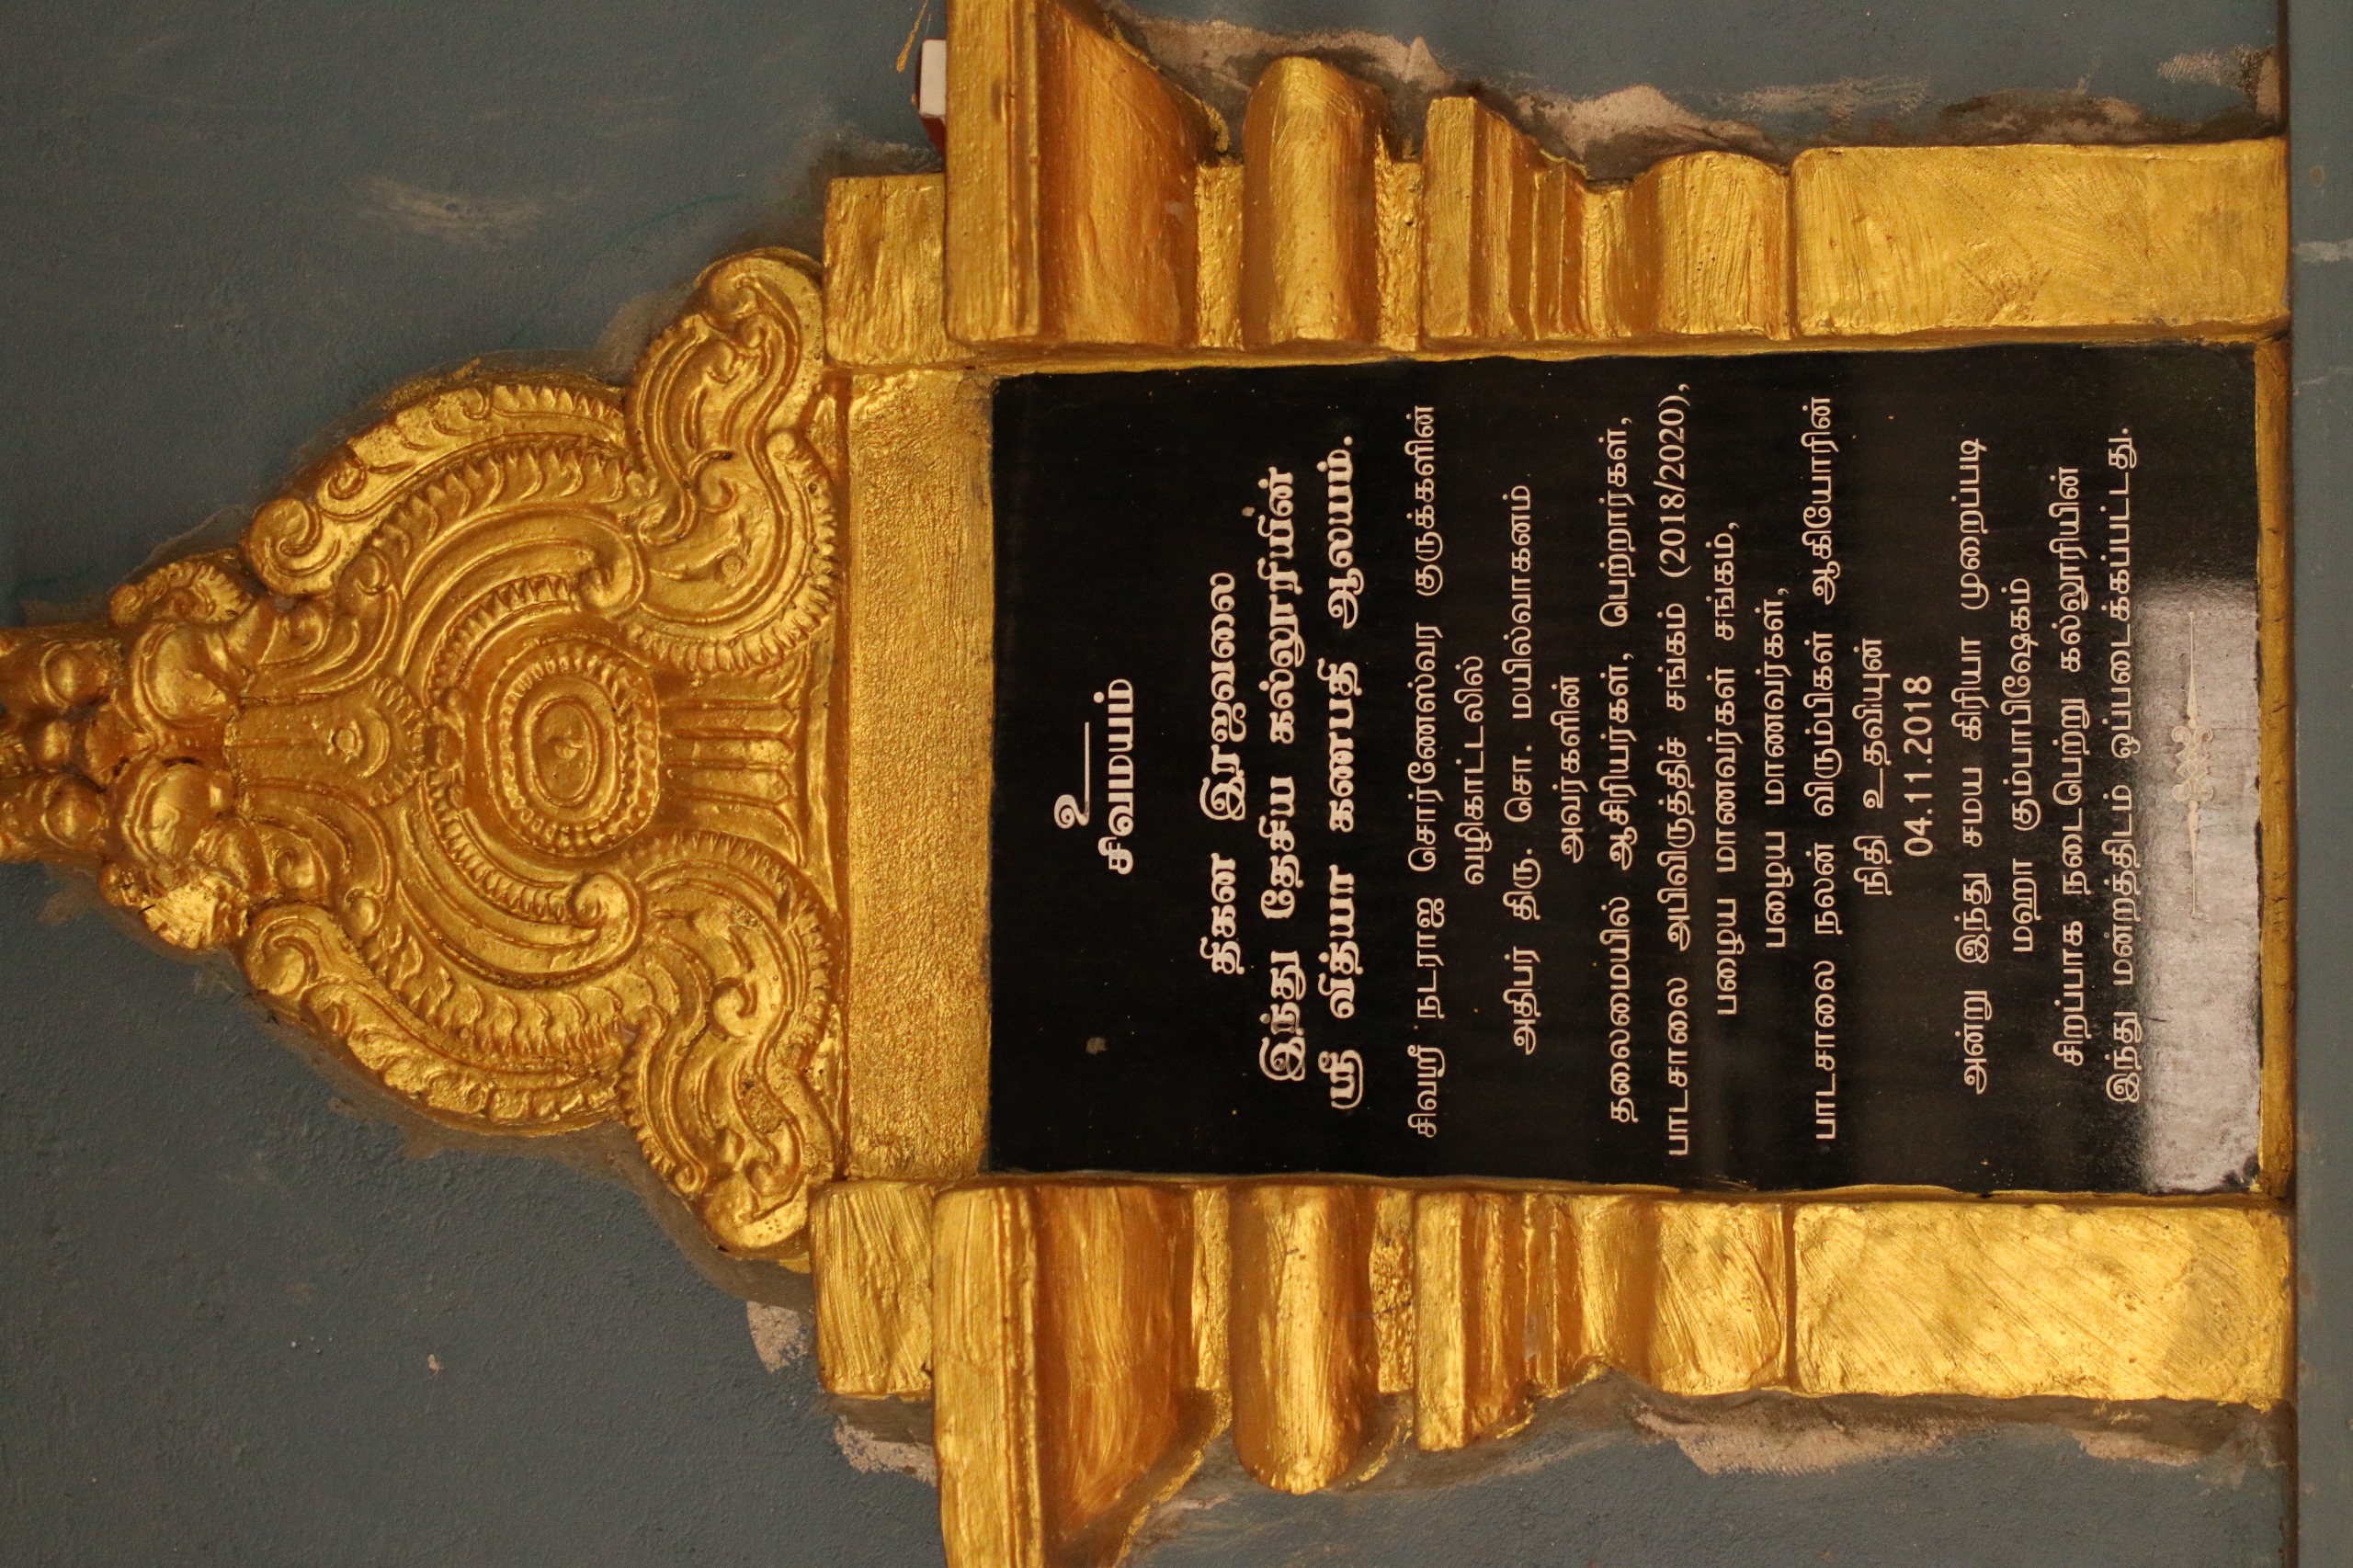 உ
சிவமயம்
திகன இரஜவலை
இந்து தேசிய கல்லூரியின்
ஸ்ரீ வித்யா கணபதி ஆலயம்.
சிவஸ்ரீ நடராஜ சொர்ணேஸ்வர குருக்களின்
வழிகாட்டலில்
அதிபர் திரு. சொ. மயில்வாகனம்
அவர்களின்
தலைமையில் ஆசிரியர்கள், பெற்றார்கள்,
பாடசாலை அபிவிருத்திச் சங்கம் (2018/2020),
பழைய மாணவர்கள் சங்கம்,
பழைய மாணவர்கள்,
பாடசாலை நலன் விரும்பிகள் ஆகியோரின்
நிதி உதவியுன்
04.11.2018
அன்று இந்து சமய கிரியா முறைப்படி
மஹா கும்பாபிஷேகம்
சிறப்பாக நடைபெற்று கல்லூரியின்
இந்து மன்றத்திடம் ஒப்படைக்கப்பட்டது.